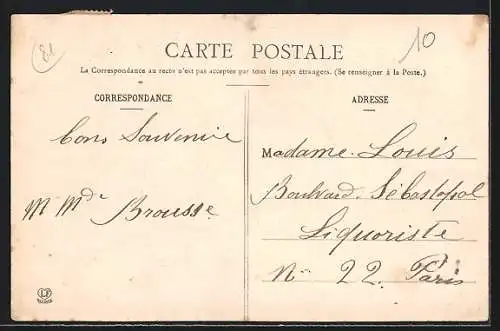 10
CARTE POSTALE
La Correspondance au recto n'est pas acceptée par tous les pays étrangers. (Se renseigner à la Poste.)
CORRESPONDANCE
ADRESSE
Bons Souvenire
Mr Mde Brousse
Madame Louis
Boulvard. Sébastopol
Liquoriste
No 22. Paris